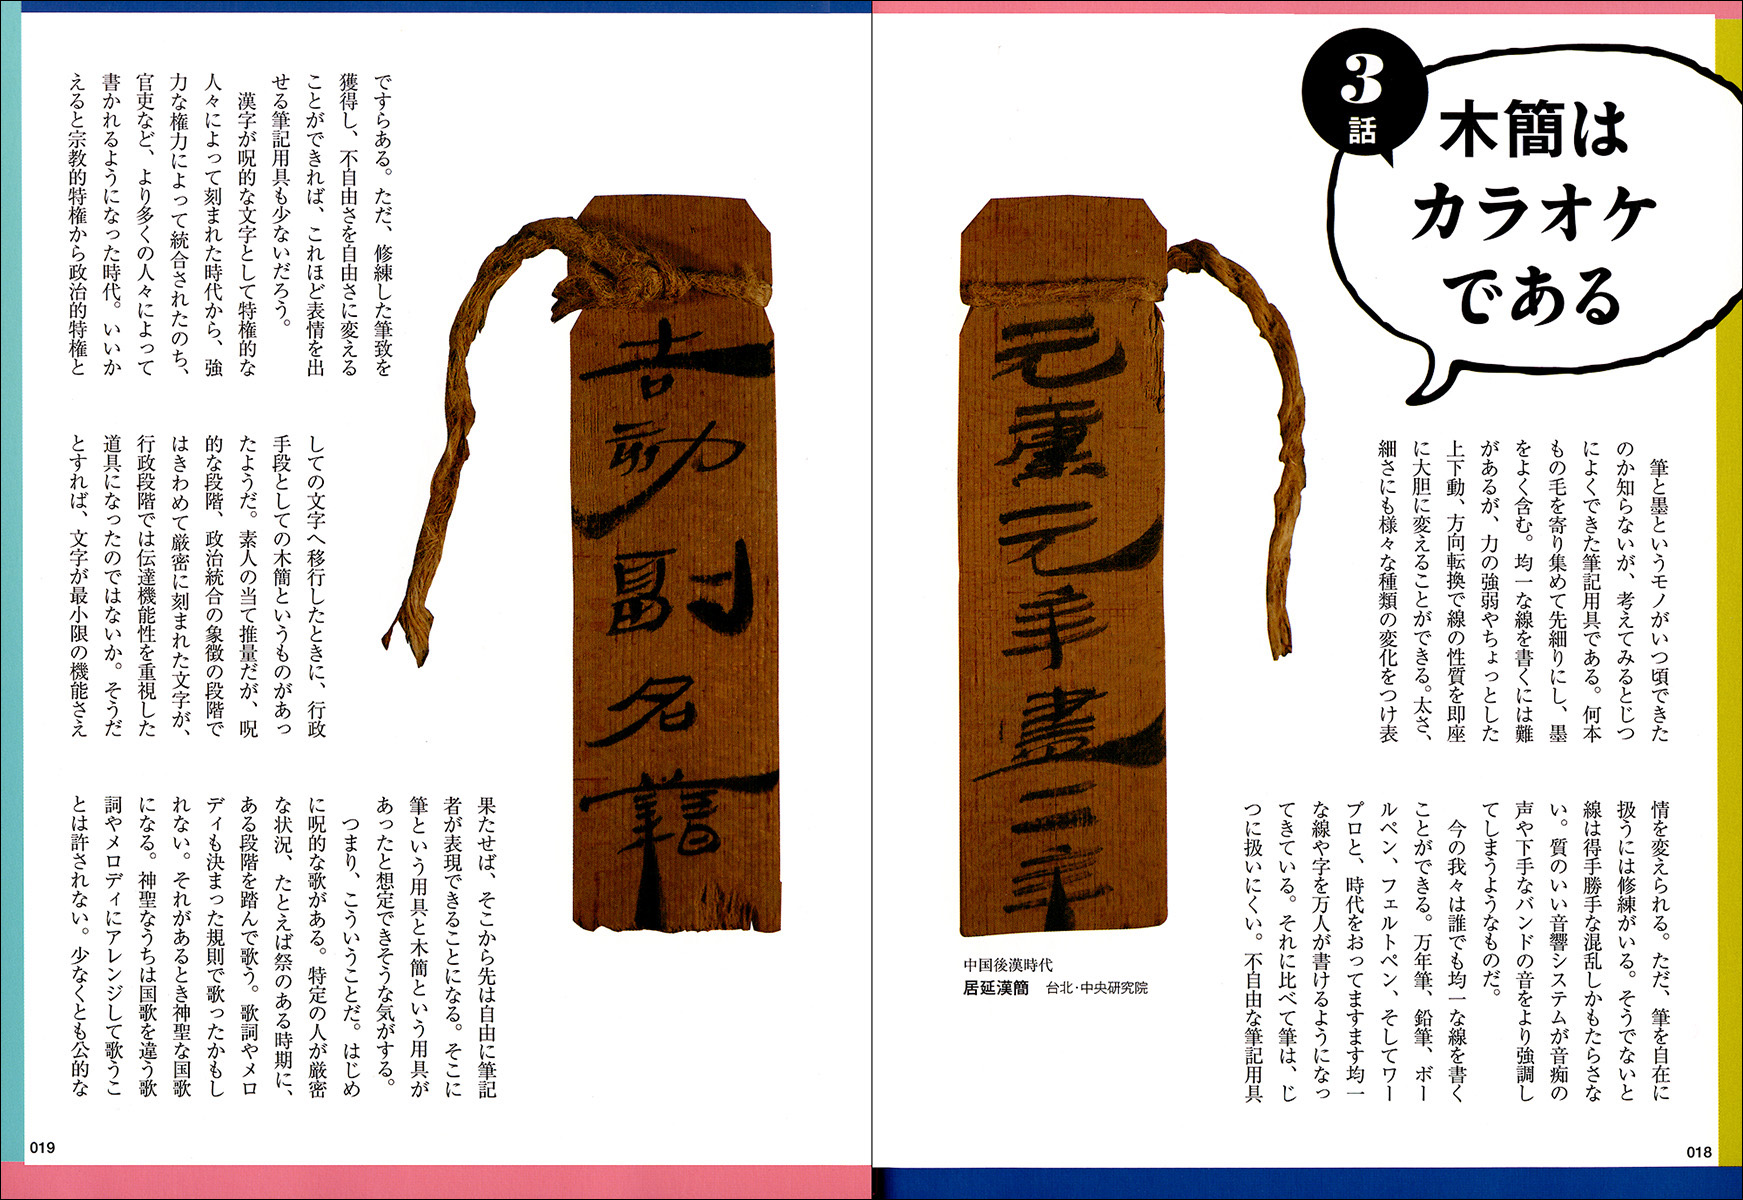 3話
木簡は
カラオケ
である
筆と墨というモノがいつ頃できた
のか知らないが、考えてみるとじつ
によくできた筆記用具である。何本
もの毛を寄り集めて先細りにし、墨
をよく含む。均一な線を書くには難
があるが、力の強弱やちょっとした
上下動、方向転換で線の性質を即座
に大胆に変えることができる。太さ、
細さにも様々な種類の変化をつけ表
情を変えられる。ただ、筆を自在に
扱うには修練がいる。そうでないと
線は得手勝手な混乱しかもたらさな
い。質のいい音響システムが音痴の
声や下手なバンドの音をより強調し
てしまうようなものだ。
今の我々は誰でも均一な線を書く
ことができる。万年筆、鉛筆、ボー
ルペン、フェルトペン、そしてワー
プロと、時代をおってますます均一
な線や字を万人が書けるようになっ
てきている。それに比べて筆は、じ
つに扱いにくい。不自由な筆記用具
中国後漢時代
居延漢簡 台北・中央研究院
018
ですらある。ただ、修練した筆致を
獲得し、不自由さを自由さに変える
ことができれば、これほど表情を出
せる筆記用具も少ないだろう。
漢字が呪的な文字として特権的な
人々によって刻まれた時代から、強
力な権力によって統合されたのち、
官吏など、より多くの人々によって
書かれるようになった時代。いいか
えると宗教的特権から政治的特権と
しての文字へ移行したときに、行政
手段としての木簡というものがあっ
たようだ。素人の当て推量だが、呪
的な段階、政治統合の象徴の段階で
はきわめて厳密に刻まれた文字が、
行政段階では伝達機能性を重視した
道具になったのではないか。そうだ
とすれば、文字が最小限の機能さえ
果たせば、そこから先は自由に筆記
者が表現できることになる。そこに
筆という用具と木簡という用具が
あったと想定できそうな気がする。
つまり、こういうことだ。はじめ
に呪的な歌がある。特定の人が厳密
な状況、たとえば祭のある時期に、
ある段階を踏んで歌う。歌詞やメロ
ディも決まった規則で歌ったかもし
れない。それがあるとき神聖な国歌
になる。神聖なうちは国歌を違う歌
詞やメロディにアレンジして歌うこ
とは許されない。少なくとも公的な
019